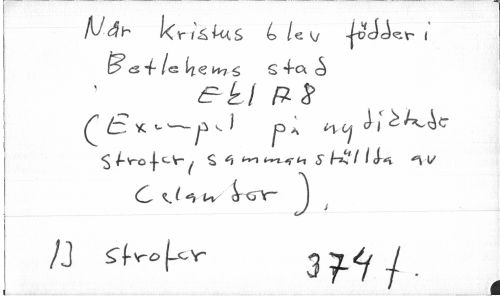 När Kristus blev födder i
Betlehems stad
Ekl A 8
(Exempel på nydiktade
strofer, sammanställda av
Celander).
13 strofer 374 f.